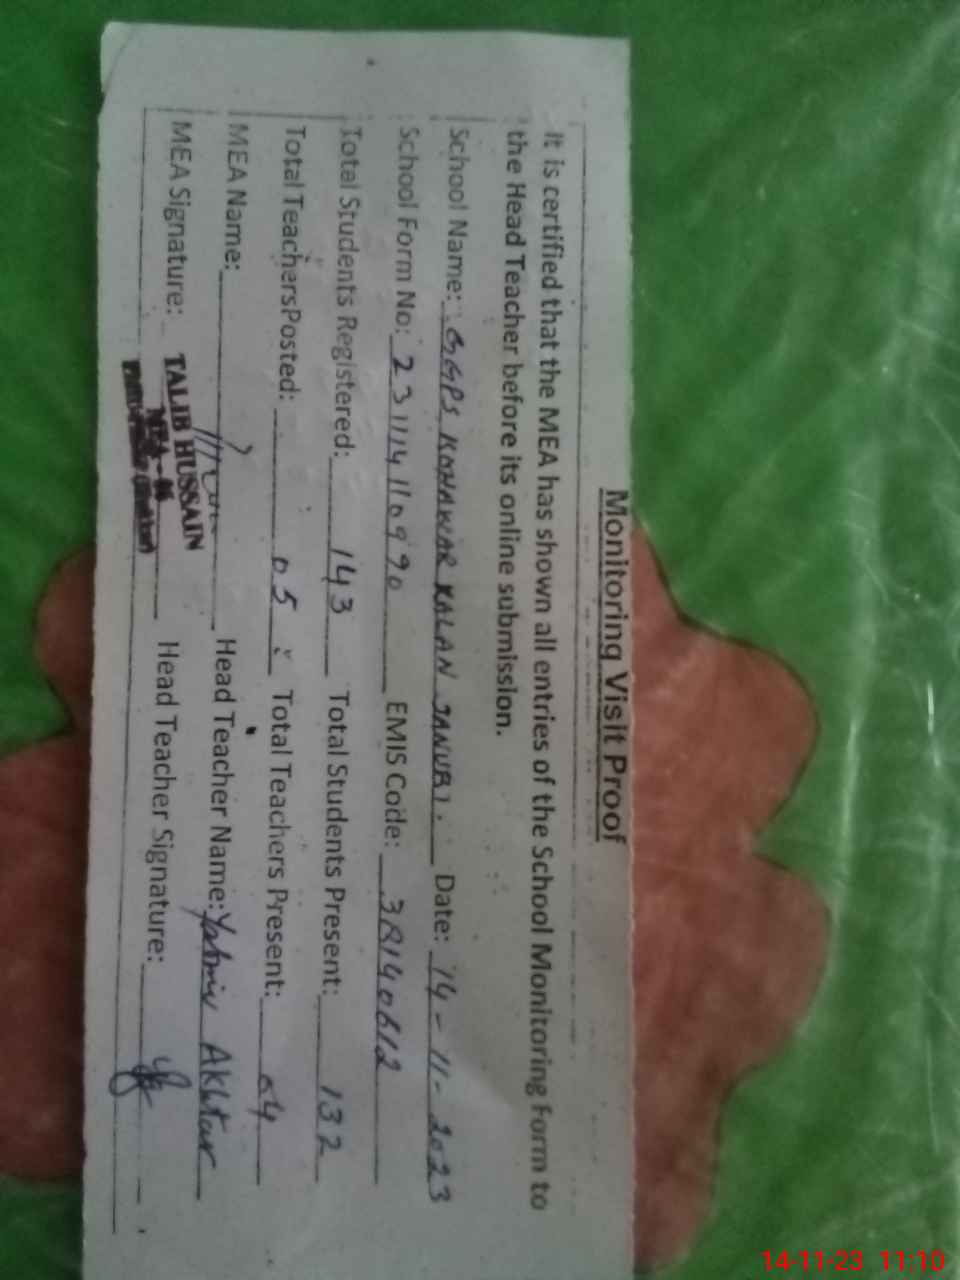 Monitoring Visit Proof
It is certified that the MEA has shown all entries of the School Monitoring Form to
the Head Teacher before its online submission.
School Name: GGPS KONAWAR KALAN JANUBI. Date: 14-11-2023
School Form No: 231114110990 EMIS Code: 38140612
Total Students Registered: 143 Total Students Present: 132
Total TeachersPosted: 05 Total Teachers Present: 04
MEA Name: Head Teacher Name: Akhtar
MEA Signature: TALIB HUSSAIN Head Teacher Signature:
14-11-23 11:10